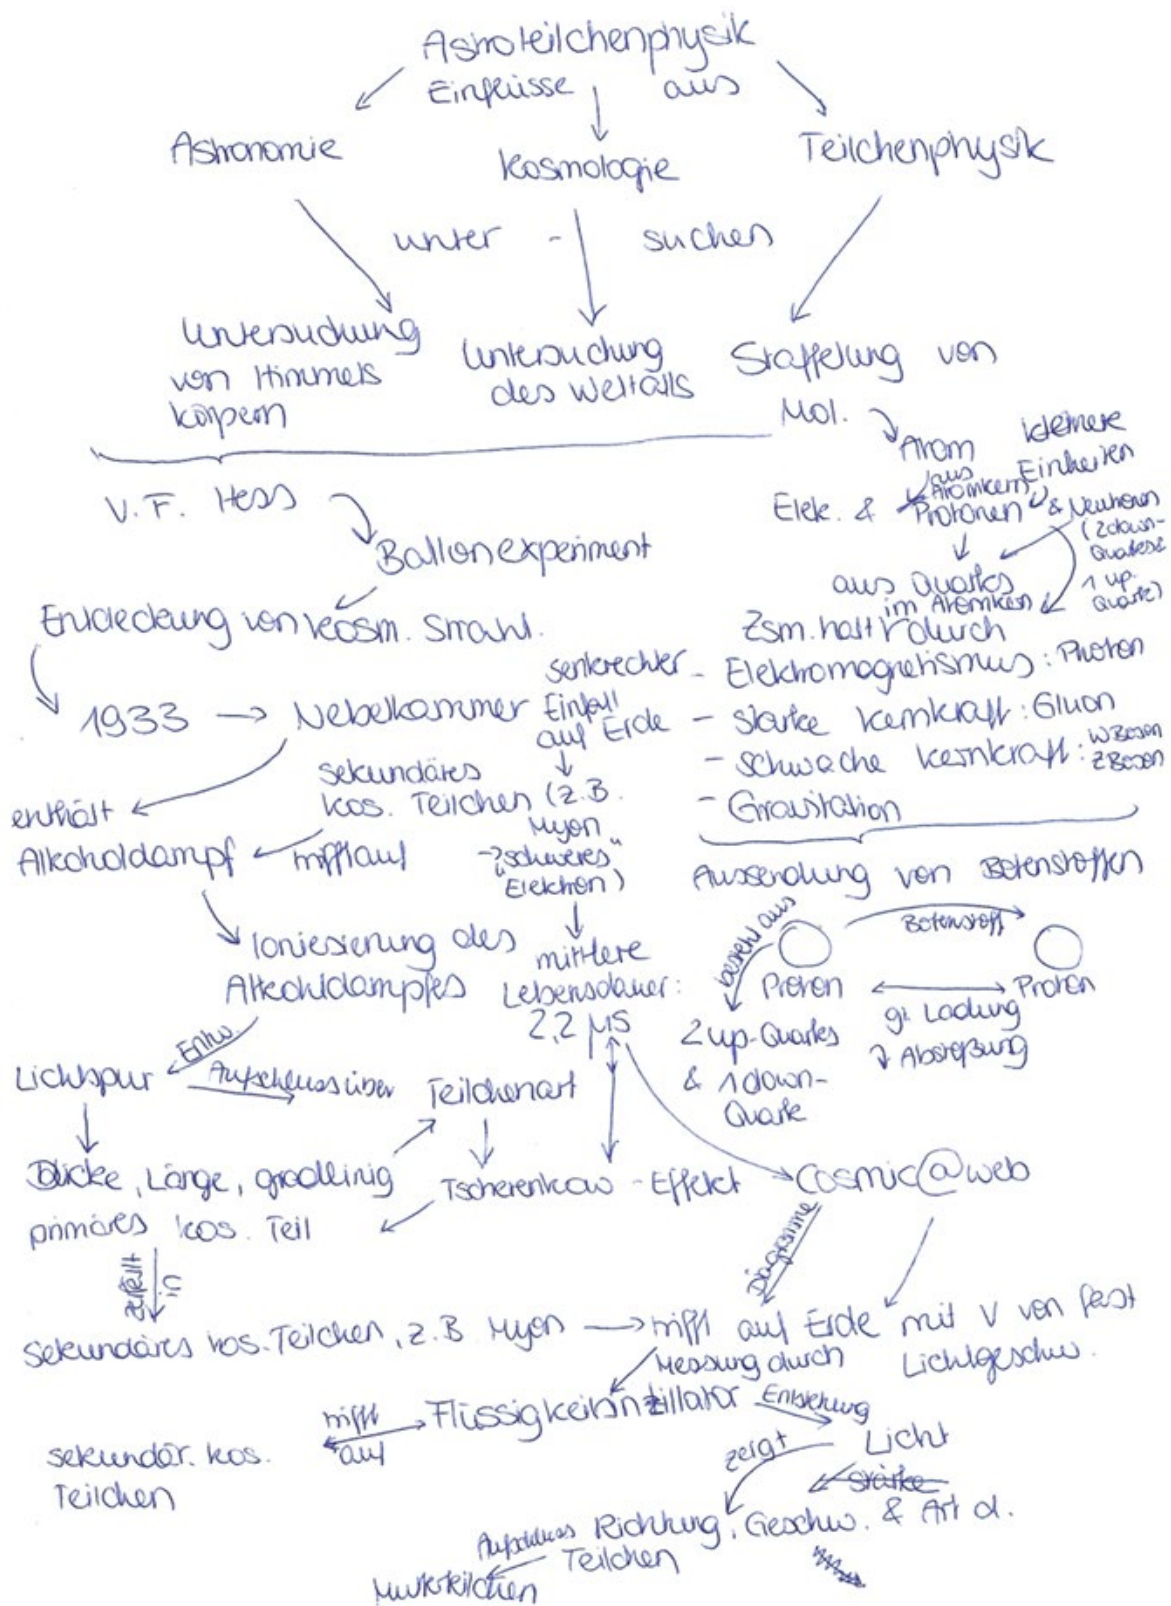 Astroteilchenphysik
Einflüsse aus
Astronomie
Kosmologie
Teilchenphysik
unter - suchen
Untersuchung
von Himmels
körpern
Untersuchung
des Weltalls
Staffelung von
Mol.
Atom
kleinere
Einheiten
aus
Atomkern
Elek. & Protonen & Neutronen
(2down-
Quarks &
1 up-
Quark)
aus Quarks
im Atomkern
Zsm.halt durch
- Elektromagnetismus: Photon
- starke Kernkraft: Gluon
- schwache Kernkraft: W Boson
Z Boson
- Gravitation
Aussendung von Botenstoffen
Botenstoff
besteht aus
Proton
Proton
gl. Ladung
Abstoßung
2 up-Quarks
& 1 down-
Quark
V.F. Hess
Ballonexperiment
Entdeckung von kosm. Strahl.
1933
Nebelkammer
senkrechter
Einfall
auf Erde
enthält
Alkoholdampf
trifft auf
sekundäres
kos. Teilchen (z.B.
Myon
"schweres"
Elektron)
Ioniesierung des
Alkohldampfes
mittlere
Lebensdauer:
2,2 µs
Entw.
Lichtspur
Aufschluss über
Teilchenart
Dicke, Länge, gradlinig
Tscherenkow - Effekt
Cosmic@web
primäres kos. Teil
zerfällt
in
Diagramme
sekundäres kos. Teilchen, z.B Myon
trifft auf Erde mit V von fast
Lichtgeschw.
Messung durch
Flüssigkeitsnzillator
Entstehung
Licht
trifft
auf
sekundär. kos.
Teilchen
zeigt
Stärke
Richtung, Geschw. & Art d.
Teilchen
Aufschluss